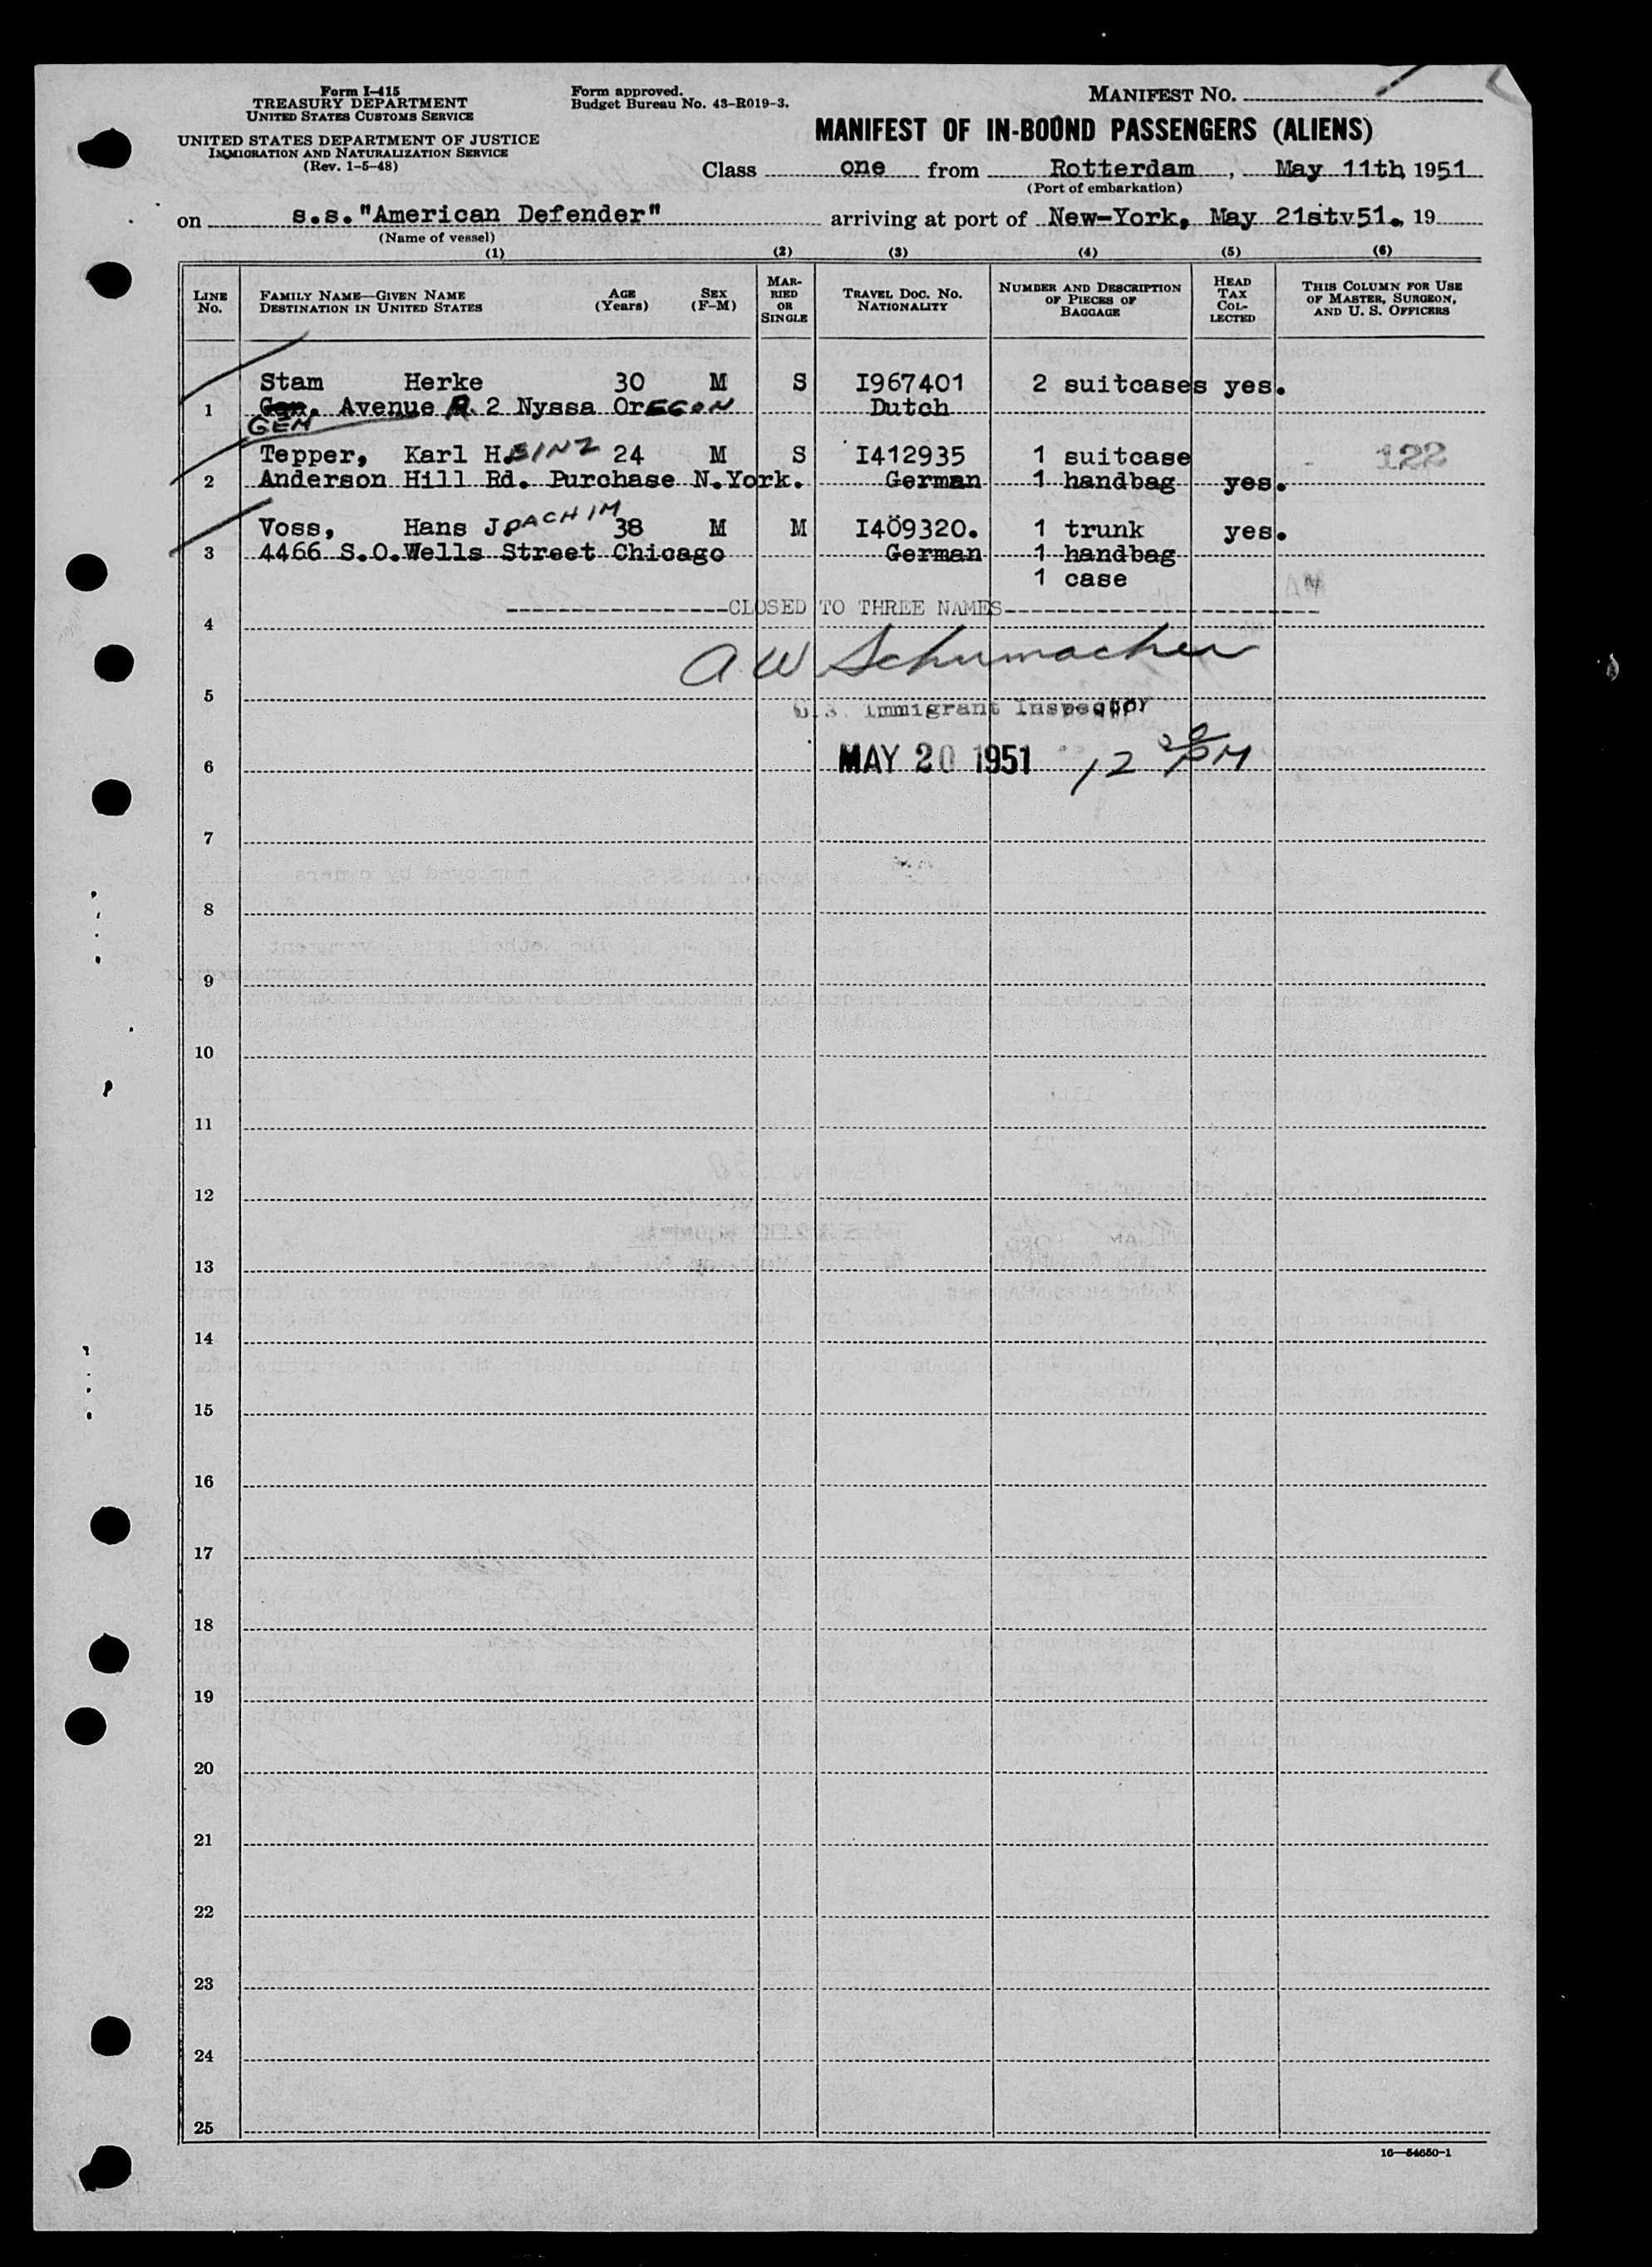 Form I-415
TREASURY DEPARTMENT
UNITED STATES CUSTOMS SERVICE
UNITED STATES DEPARTMENT OF JUSTICE
IMMIGRATION AND NATURALIZATION SERVICE
(Rev. 1-5-48)
Form approved.
Budget Bureau No. 43-R019-3.
MANIFEST NO.
MANIFEST OF IN-BOUND PASSENGERS (ALIENS)
Class one from Rotterdam, May 11th, 1951
(Port of embarkation)
on s.s."American Defender" arriving at port of New-York, May 21st 51., 19
(Name of vessel)
(1) (2) (3) (4) (5) (6)
LINE No. FAMILY NAME—GIVEN NAME DESTINATION IN UNITED STATES AGE (Years) SEX (F-M) MARRIED OR SINGLE TRAVEL DOC. NO. NATIONALITY NUMBER AND DESCRIPTION OF PIECES OF BAGGAGE HEAD TAX COLLECTED THIS COLUMN FOR USE OF MASTER, SURGEON, AND U. S. OFFICERS
Stam Herke 30 M S I967401 2 suitcases yes.
1 Gen. Avenue R. 2 Nyssa OrEGON Dutch
GEM
Tepper, Karl H.EINZ 24 M S I412935 1 suitcase 122
2 Anderson Hill Rd. Purchase N.York. German 1 handbag yes.
Voss, Hans JOACHIM 38 M M I409320. 1 trunk yes.
3 4466 S.O.Wells Street Chicago German 1 handbag
1 case
CLOSED TO THREE NAMES
4
A W Schumacher
5
U.S. Immigrant Inspector
6 MAY 20 1951 12 PM
7
8
9
10
11
12
13
14
15
16
17
18
19
20
21
22
23
24
25
16—54650-1